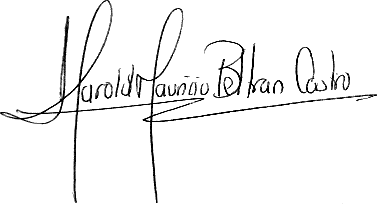 Harold Mauricio Beltran Castro